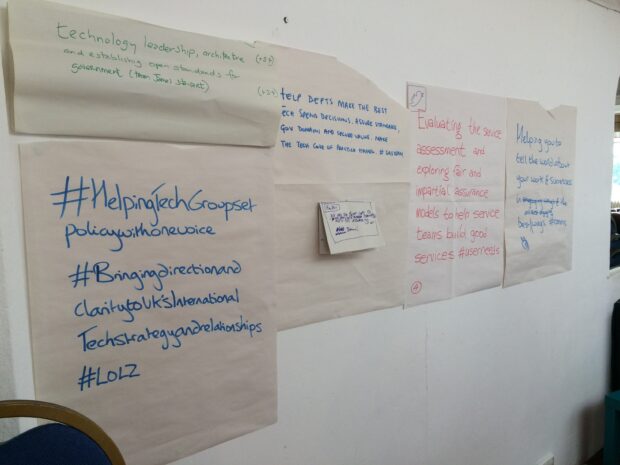 technology leadership, architecture
and establishing open standards for
government (then James Stewart)
#HelpingTechGroupset
policywithonevoice
#Bringingdirectionand
claritytoUK'sInternational
Techstrategyandrelationships
#LOLZ
HELP DEPTS MAKE THE BEST
TECH SPEND DECISIONS, ASSURE STANDARDS,
GOV DOMAIN AND SECURE VALUE. MAKE
THE TECH CODE OF PRACTICE
Evaluating the service
assessment and
exploring fair and
impartial assurance
models to help service
teams build good
services #userneeds
Helping you to
tell the world about
your work & successes